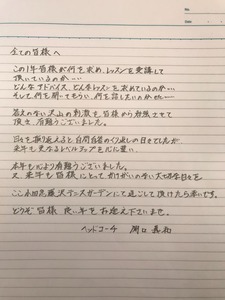 全ての皆様へ
この1年皆様が何を求め、レッスンを受講して
頂いているのか…
どんなアドバイス、どんなレッスンを求めているのか…
そして、何を聞いてもらい、何を話したいのか…
答えのない沢山の刺激を皆様から勉強させて
頂き、有難うございました。
日々を振り返ると自問自答のくり返しの日々でしたが
来年も更なるレベルアップを心に誓い、
本年も心より有難うございました。
又、来年も皆様にとってかけがいのない大切な日々を
ここ 藤沢テニスガーデンにて過ごして頂けたら幸いです。
どうぞ皆様 良い年をお迎え下さいませ。
ヘッドコーチ